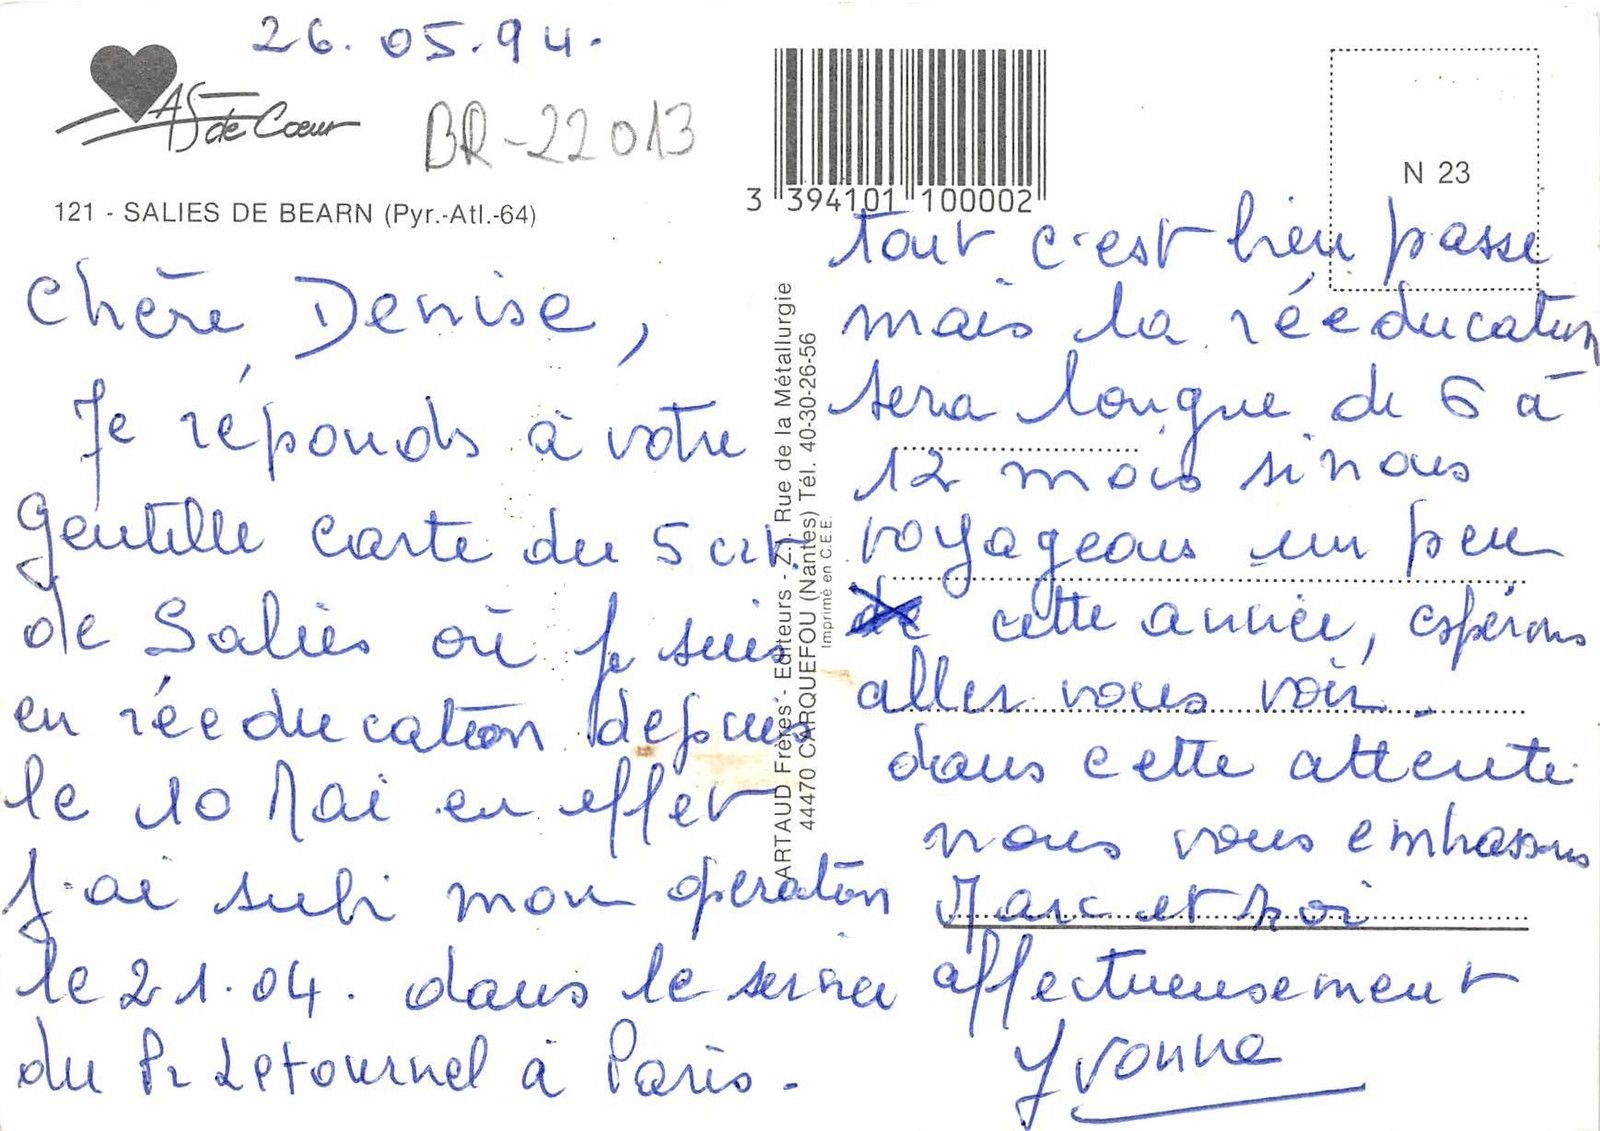 26.05.94.
As de Coeur
BR-22013
121 - SALIES DE BEARN (Pyr.-Atl.-64)
Chère Denise,
Je réponds à votre
gentille carte du 5 crt.
de Salies où je suis
en rééducation depuis
le 10 Mai en effet
j'ai subi mon operation
le 21.04. dans le service
du Pr Letournel à Paris.
3 394101 100002
ARTAUD Frères - Editeurs - Z.I. Rue de la Métallurgie
44470 CARQUEFOU (Nantes) Tél. 40-30-26-56
Imprimé en C.E.E.
N 23
tout c'est bien passé
mais la rééducation
sera longue de 6 à
12 mois si nous
voyageons un peu
de cette année, espérons
aller vous voir.
dans cette attente
nous vous embrassons
Marc et moi
affectueusement
Yvonne